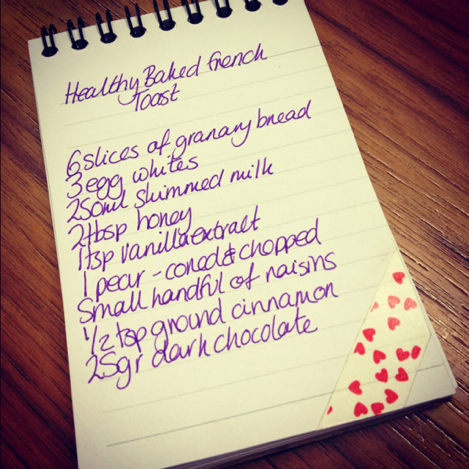 Healthy Baked French
Toast
6 slices of granary bread
3 egg whites
250ml skimmed milk
2tbsp honey
1tsp vanilla extract
1 pear - cored & chopped
Small handful of raisins
1/2 tsp ground cinnamon
25gr dark chocolate